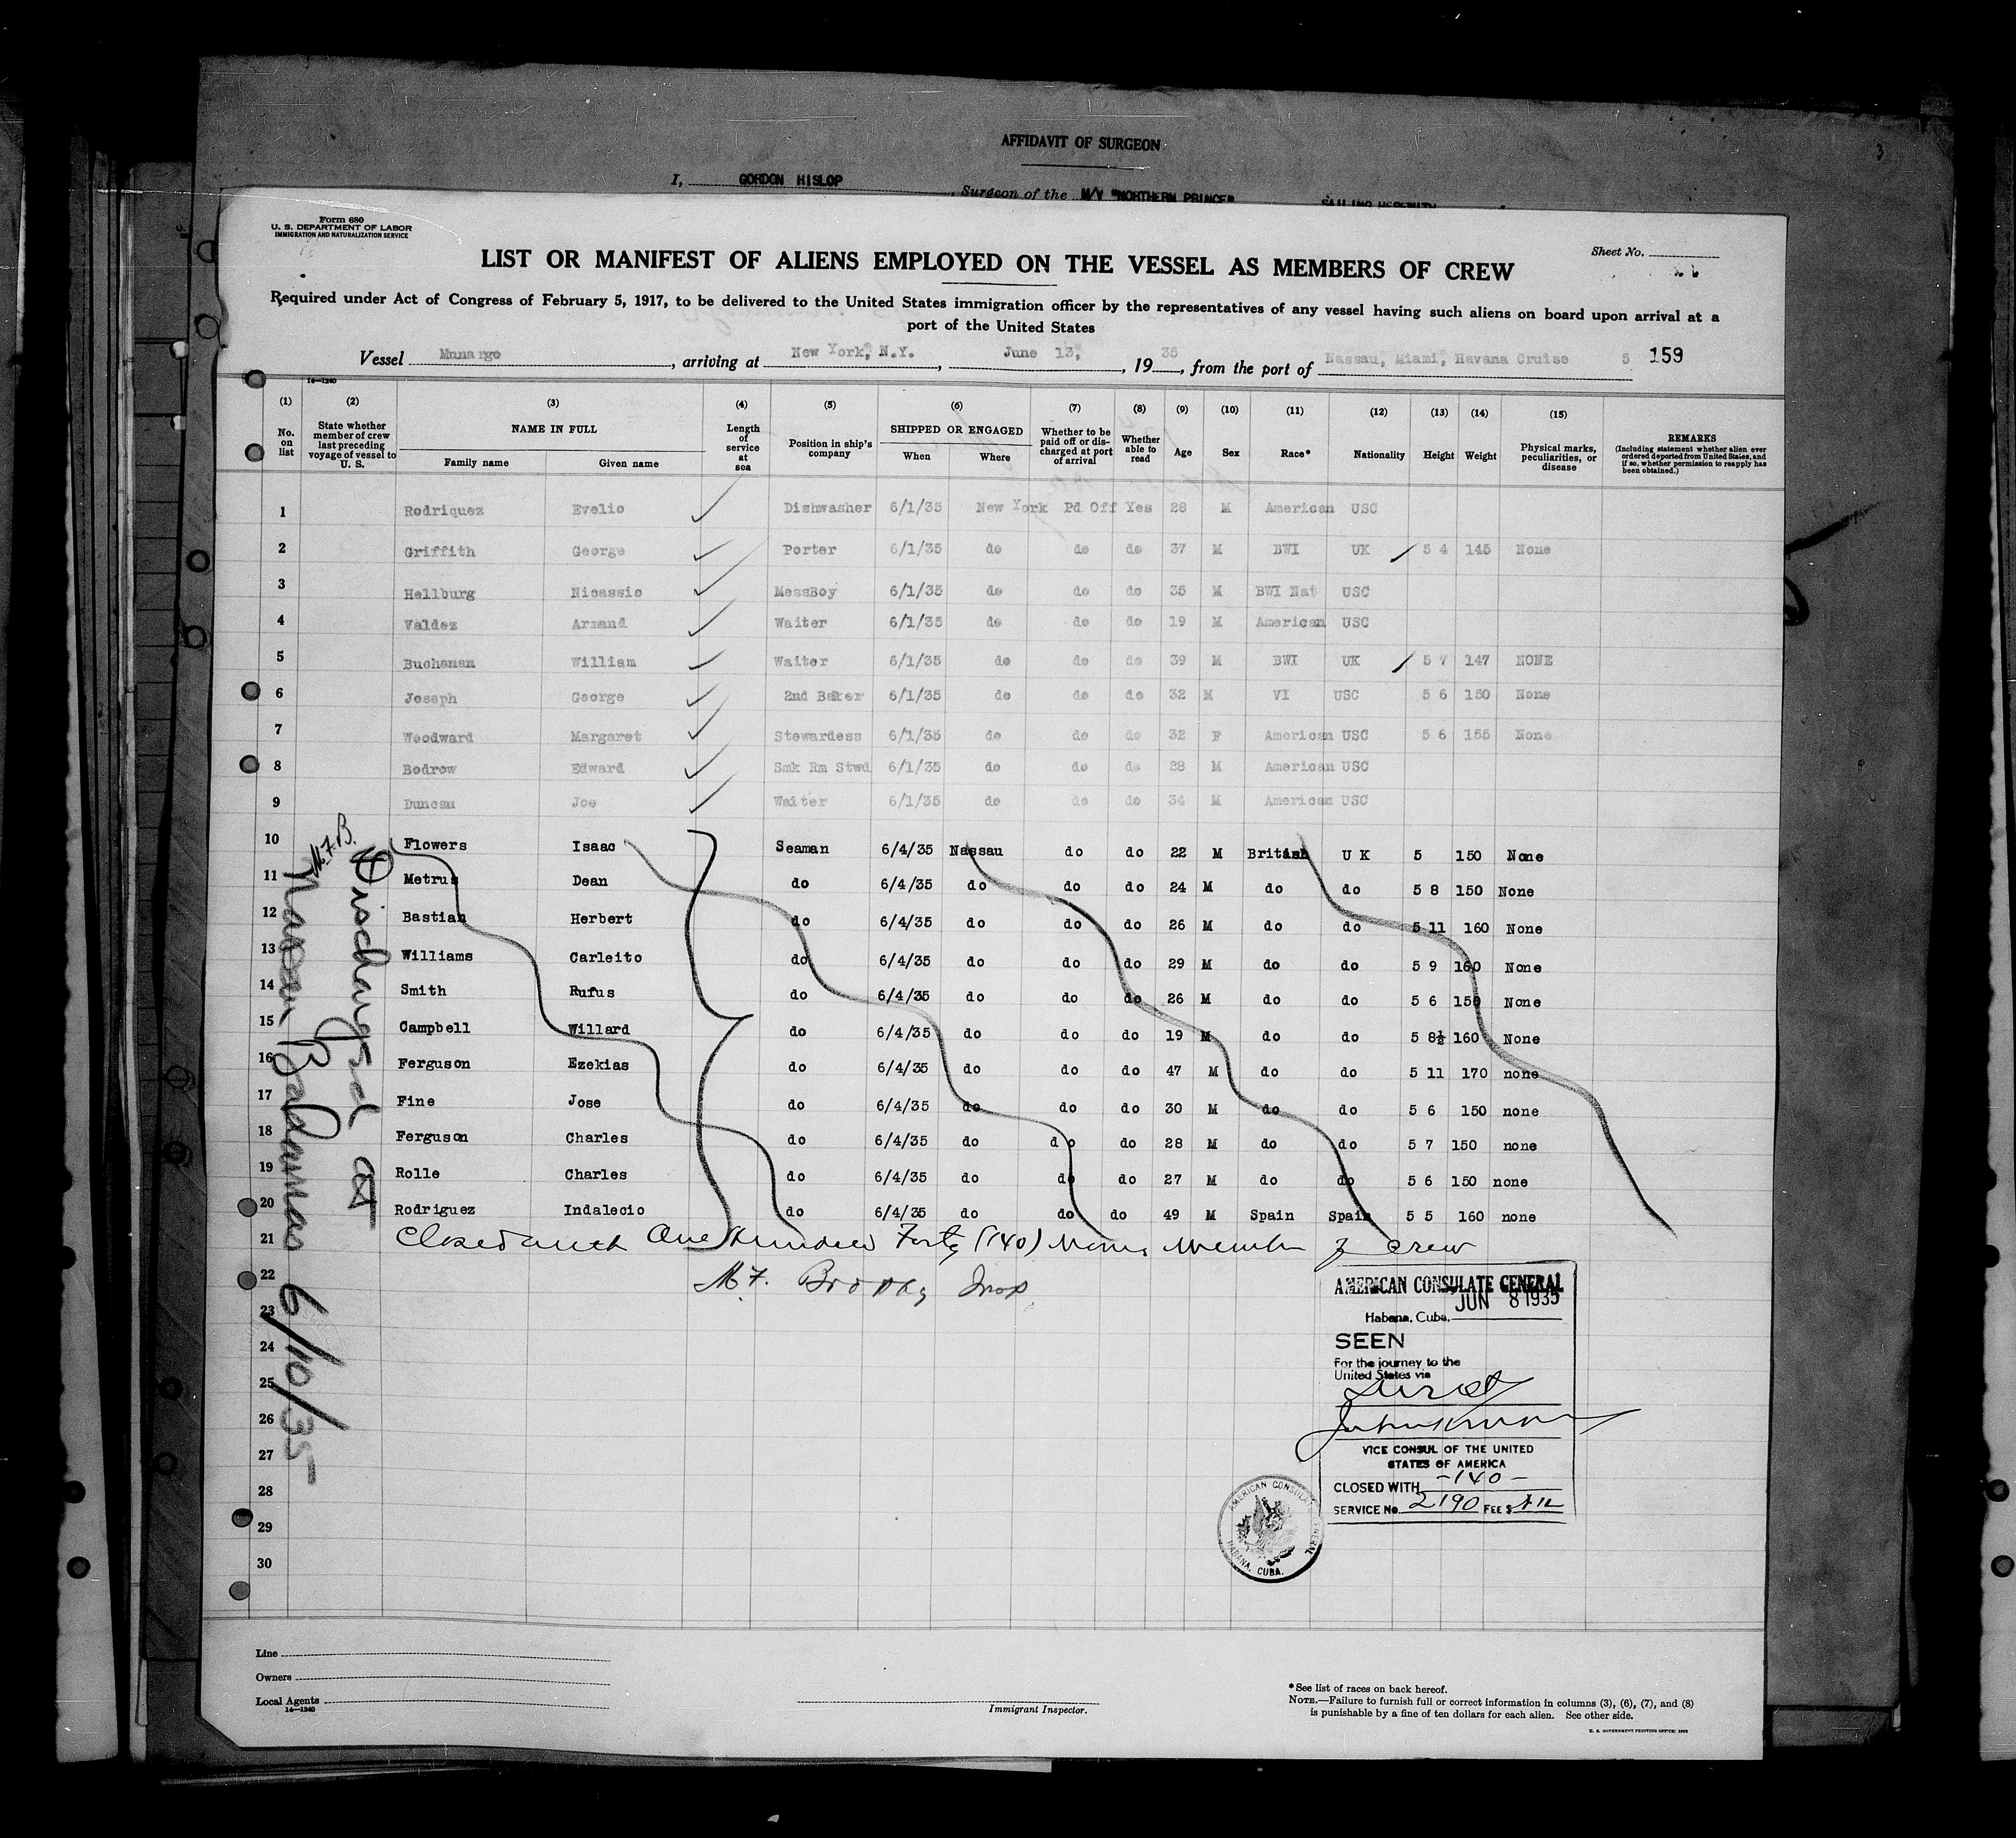 AFFIDAVIT OF SURGEON
I, GORDON HISLOP, Surgeon of the M/V "NORTHERN PRINCE" SAILING HEREWITH
3
Form 680
U. S. DEPARTMENT OF LABOR
IMMIGRATION AND NATURALIZATION SERVICE
Sheet No.
LIST OR MANIFEST OF ALIENS EMPLOYED ON THE VESSEL AS MEMBERS OF CREW
Required under Act of Congress of February 5, 1917, to be delivered to the United States immigration officer by the representatives of any vessel having such aliens on board upon arrival at a
port of the United States
Vessel Munargo, arriving at New York, N.Y. June 13, 1935, from the port of Nassau, Miami, Havana Cruise 5 159
14—1240
(1) (2) (3) (4) (5) (6) (7) (8) (9) (10) (11) (12) (13) (14) (15)
No. on list State whether member of crew last preceding voyage of vessel to U. S. NAME IN FULL Family name Given name Length of service at sea Position in ship's company SHIPPED OR ENGAGED When Where Whether to be paid off or discharged at port of arrival Whether able to read Age Sex Race* Nationality Height Weight Physical marks, peculiarities, or disease REMARKS (Including statement whether alien ever ordered deported from United States, and if so, whether permission to reapply has been obtained.)
1 Rodriquez Evelio Dishwasher 6/1/35 New York Pd Off Yes 28 M American USC
2 Griffith George Porter 6/1/35 do do do 37 M BWI UK 5 4 145 None
3 Hellburg Nicassio MessBoy 6/1/35 do do do 35 M BWI Nat USC
4 Valdez Armand Waiter 6/1/35 do do do 19 M American USC
5 Buchanan William Waiter 6/1/35 do do do 39 M BWI UK 5 7 147 NONE
6 Joseph George 2nd Baker 6/1/35 do do do 32 M VI USC 5 6 150 None
7 Woodward Margaret Stewardess 6/1/35 do do do 32 F American USC 5 6 155 None
8 Bodrow Edward Smk Rm Stwd 6/1/35 do do do 28 M American USC
9 Duncan Joe Waiter 6/1/35 do do do 34 M American USC
10 Flowers Isaac Seaman 6/4/35 Nassau do do 22 M British U K 5 150 None
11 Metrus Dean do 6/4/35 do do do 24 M do do 5 8 150 None
12 Bastian Herbert do 6/4/35 do do do 26 M do do 5 11 160 None
13 Williams Carleito do 6/4/35 do do do 29 M do do 5 9 160 None
14 Smith Rufus do 6/4/35 do do do 26 M do do 5 6 150 None
15 Campbell Willard do 6/4/35 do do do 19 M do do 5 8½ 160 None
16 Ferguson Ezekias do 6/4/35 do do do 47 M do do 5 11 170 none
17 Fine Jose do 6/4/35 do do do 30 M do do 5 6 150 none
18 Ferguson Charles do 6/4/35 do do do 28 M do do 5 7 150 none
19 Rolle Charles do 6/4/35 do do do 27 M do do 5 6 150 none
20 Rodriguez Indalecio do 6/4/35 do do do 49 M Spain Spain 5 5 160 none
21 Closed with One Hundred Forty (140) Names Members of Crew
22
23
24
25
26
27
28
29
30
M.F.B.
Discharged at
Nassau Bahamas 6/10/35
M.F. Insp.
AMERICAN CONSULATE GENERAL
JUN 8 1935
Habana, Cuba,
SEEN
For the journey to the
United States via
Direct
VICE CONSUL OF THE UNITED
STATES OF AMERICA
CLOSED WITH -140-
SERVICE No. 2190 FEE $
AMERICAN CONSULATE GENERAL
HABANA, CUBA.
Line
Owners
Local Agents
14—1240
Immigrant Inspector.
*See list of races on back hereof.
NOTE.—Failure to furnish full or correct information in columns (3), (6), (7), and (8)
is punishable by a fine of ten dollars for each alien. See other side.